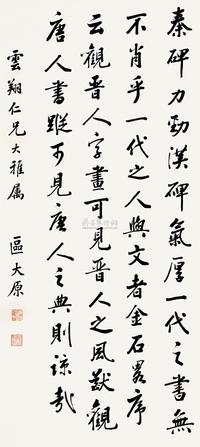 秦碑力勁漢碑氣厚一代之書無
不肖乎一代之人與文者金石畧序
云觀晉人字畫可見晉人之風猷觀
唐人書蹤可見唐人之典則諒哉
雲翔仁兄大雅属
區大原